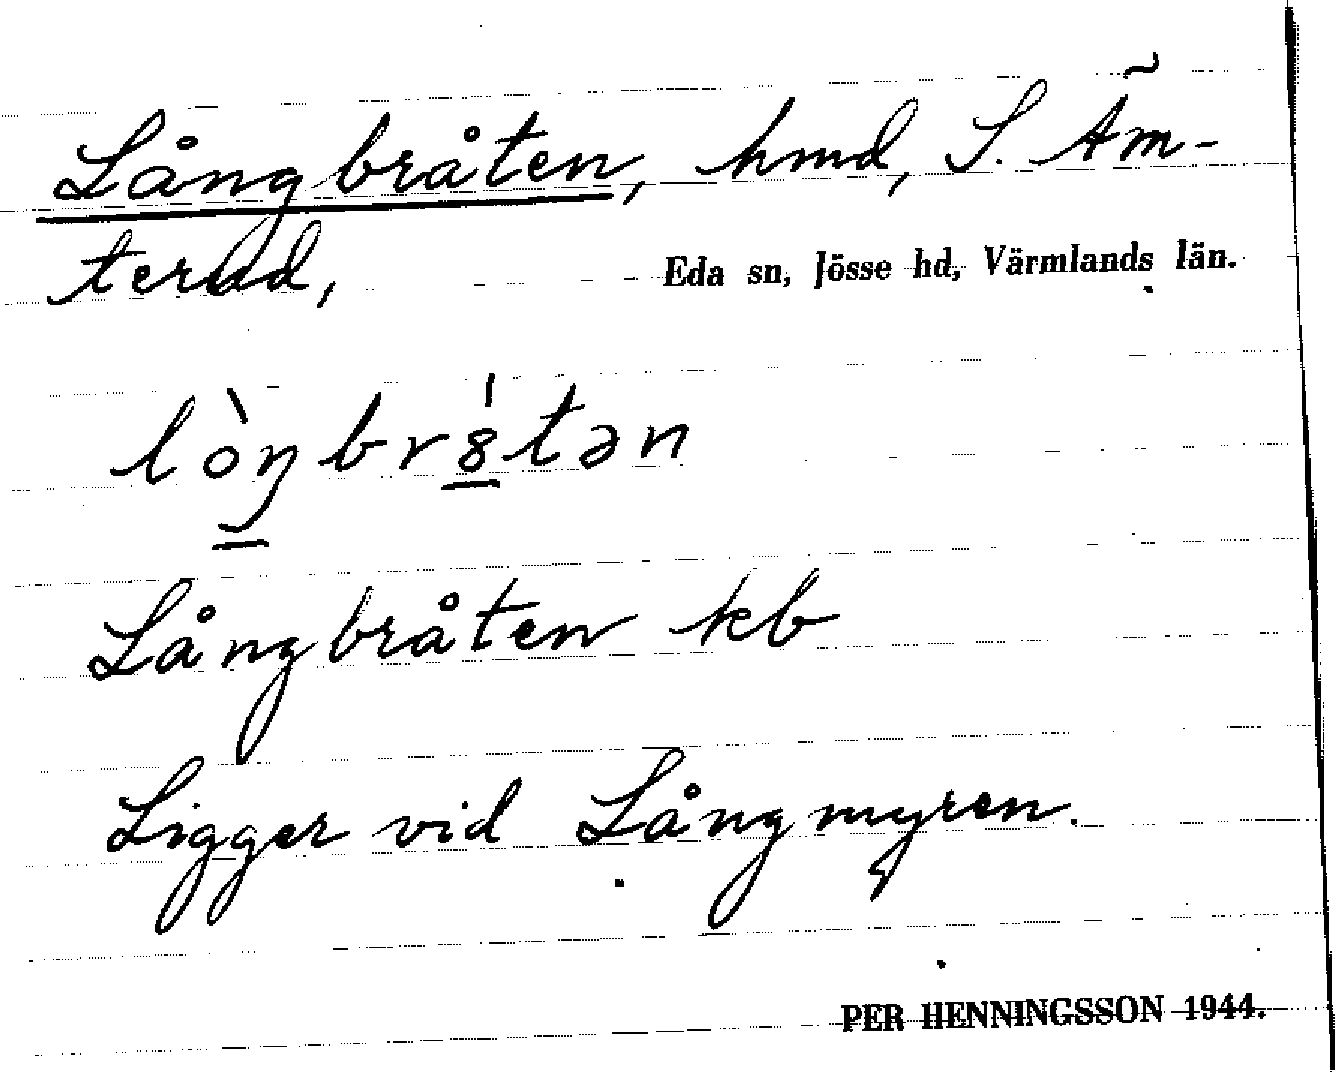 Långbråten, hmd, S. Äm-
terud,
Eda sn, Jösse hd, Värmlands län.
lòŋbr8́tən
Långbråten kb
Ligger vid Långmyren.
PER HENNINGSSON 1944.